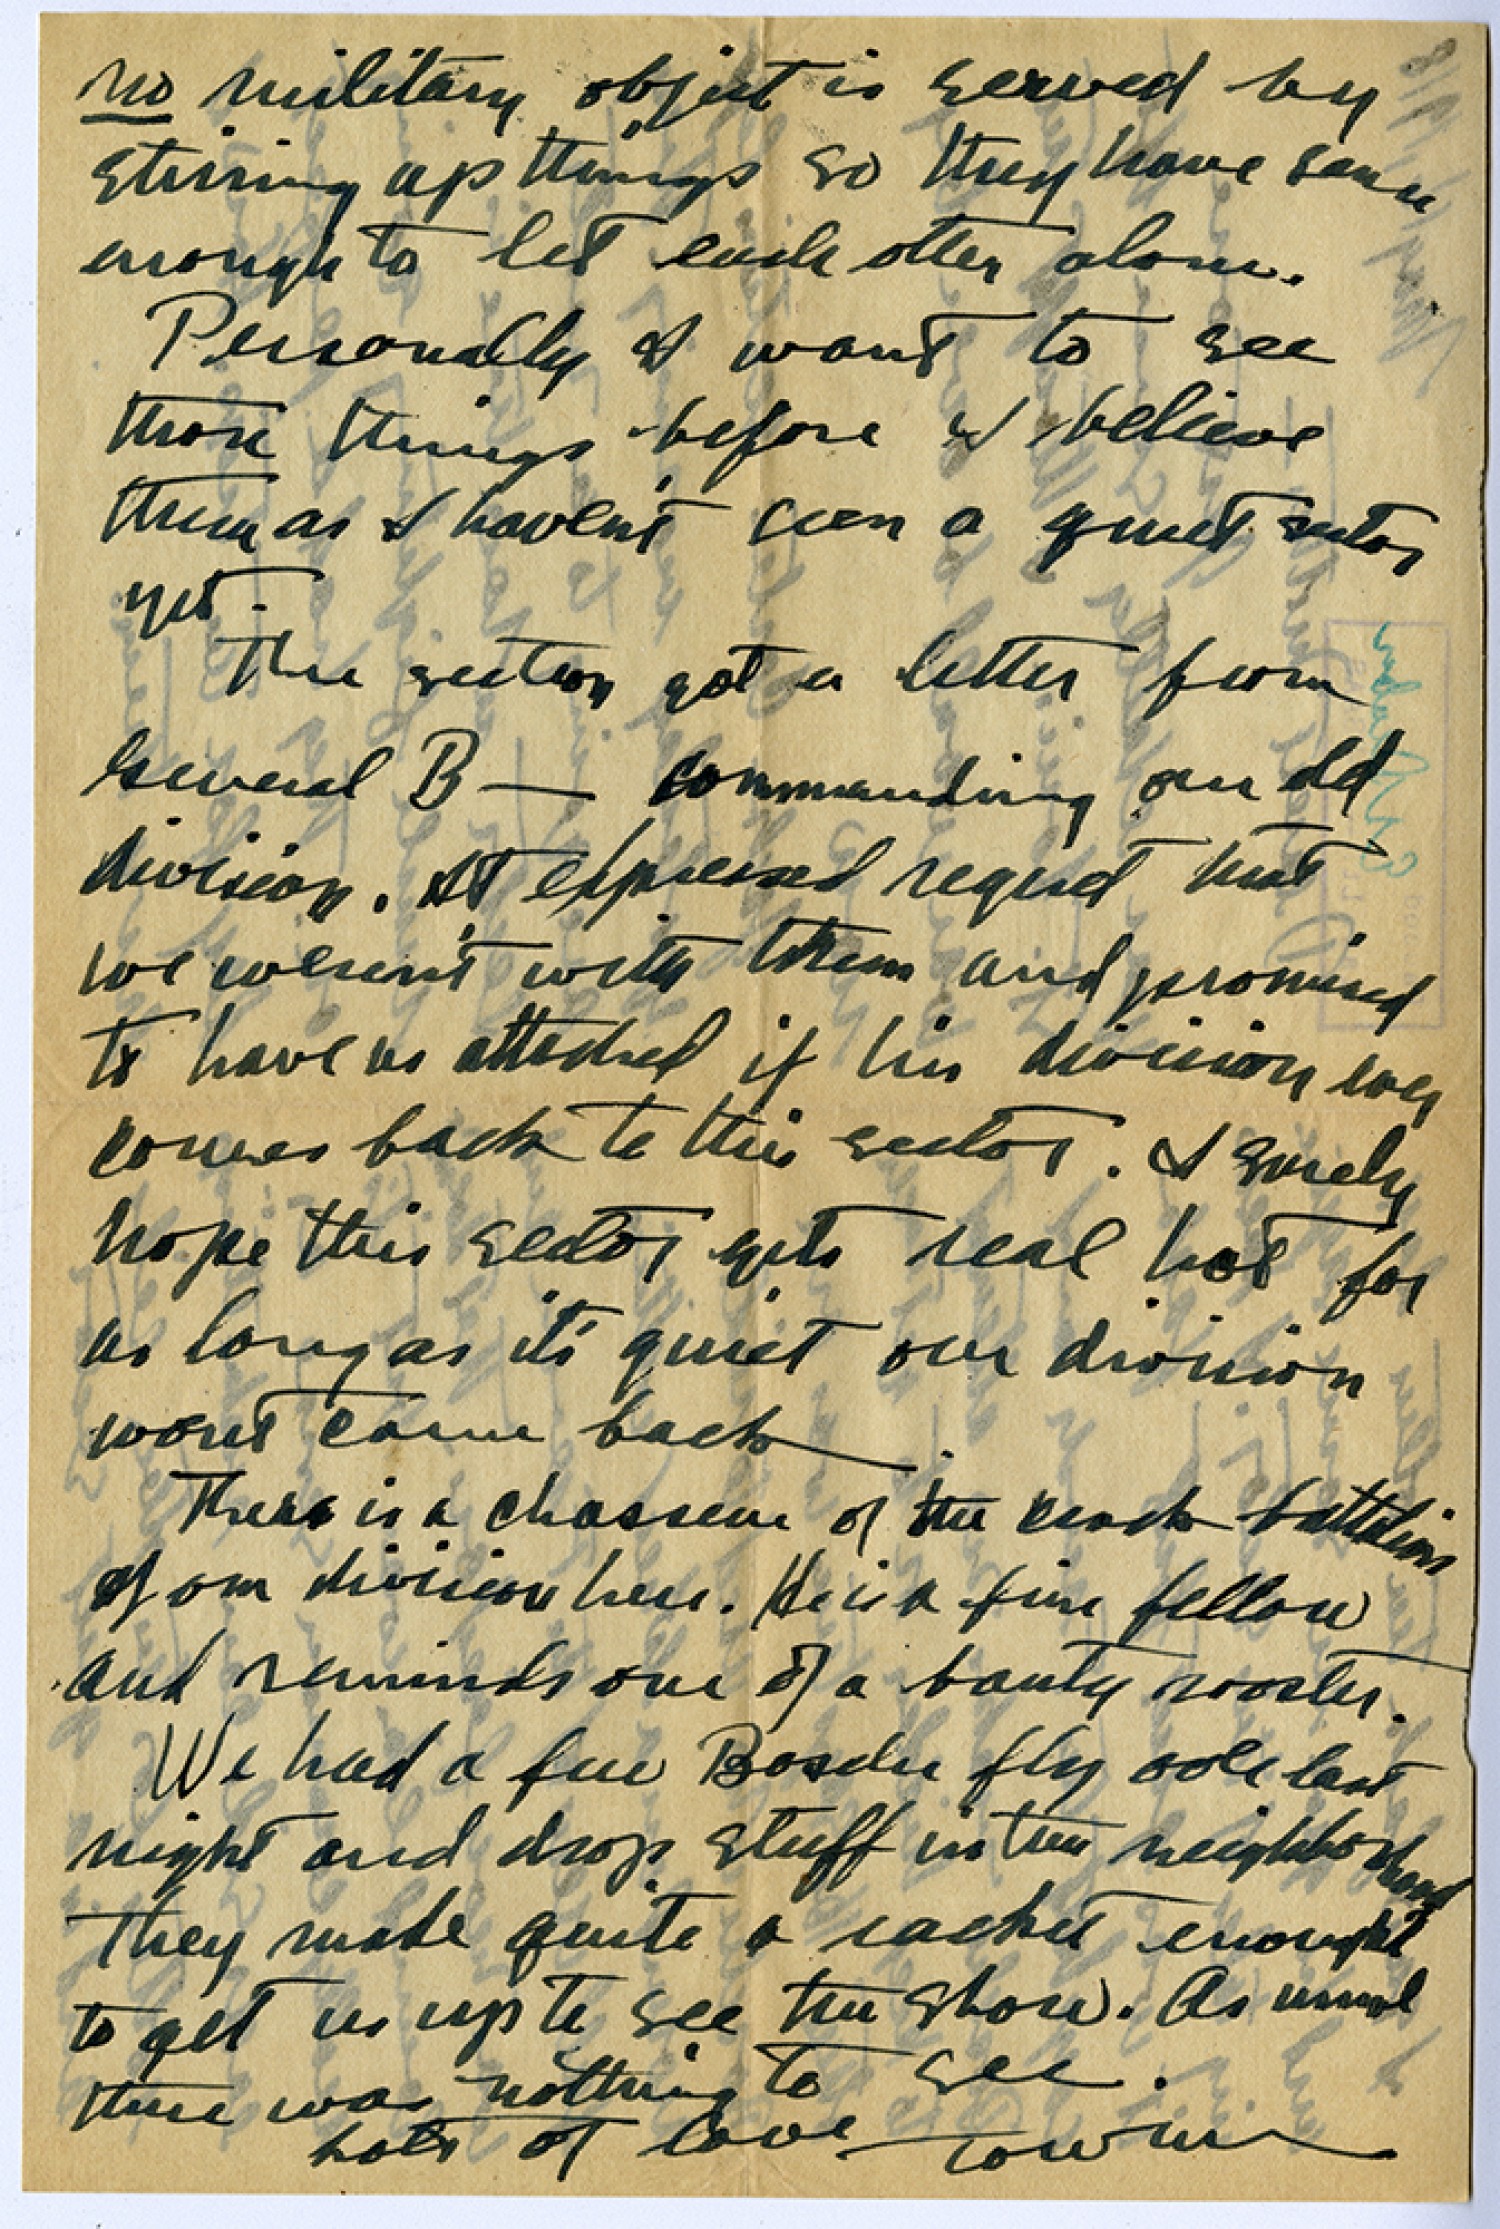 no military object is served by
stirring up things so they have sense
enough to let each other alone.
Personally I want to see
those things before I believe
them as I haven't seen a quiet sector
yet.
The section got a letter from
General B— commanding our old
division. It expressed regret that
we weren't with them and promised
to have us attached if his division ever
comes back to this sector. I surely
hope this sector gets real hot for
as long as it's quiet our division
wont come back.
There is a chasseur of the crack battalions
of our division here. He is a fine fellow
and reminds one of a banty rooster.
We had a few Bosche fly over last
night and drop stuff in the neighborhood
They made quite a racket enough
to get us up to see the show. As usual
there was nothing to see.
Lots of love —